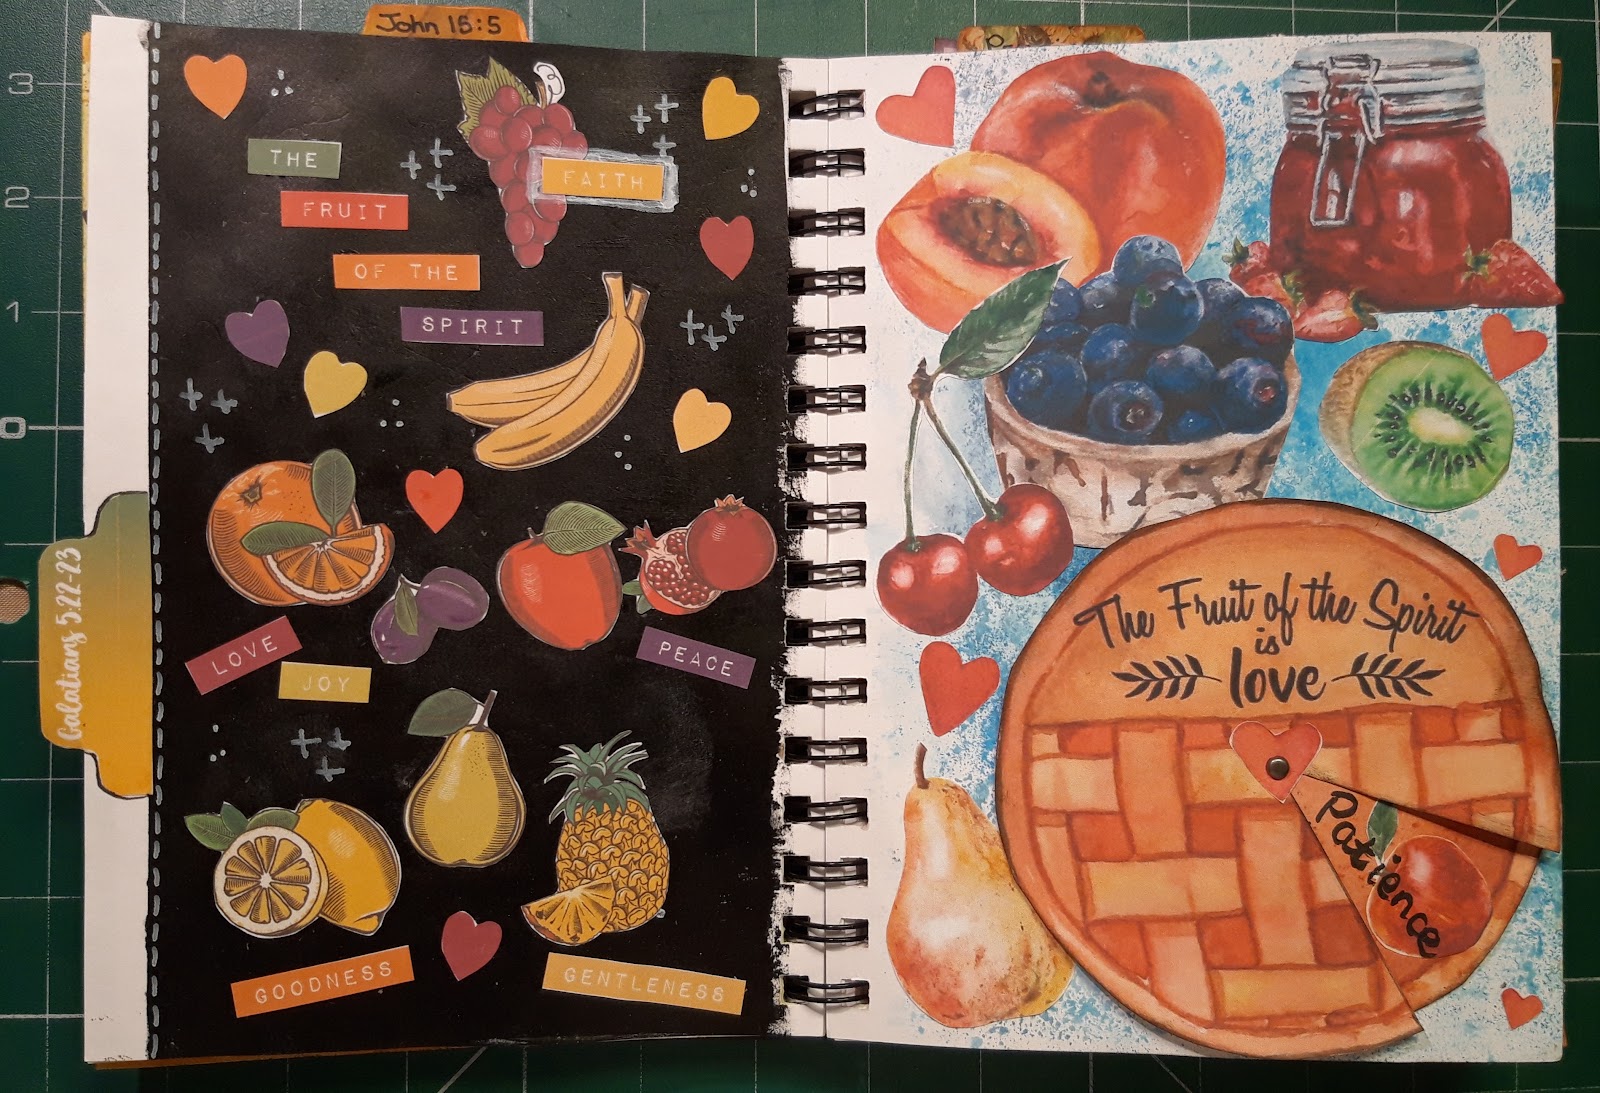 John 15:5
THE
FRUIT
OF THE
SPIRIT
FAITH
LOVE
JOY
PEACE
GOODNESS
GENTLENESS
Galatians 5:22-23
The Fruit of the Spirit
is
love
Patience
3
2
1
0